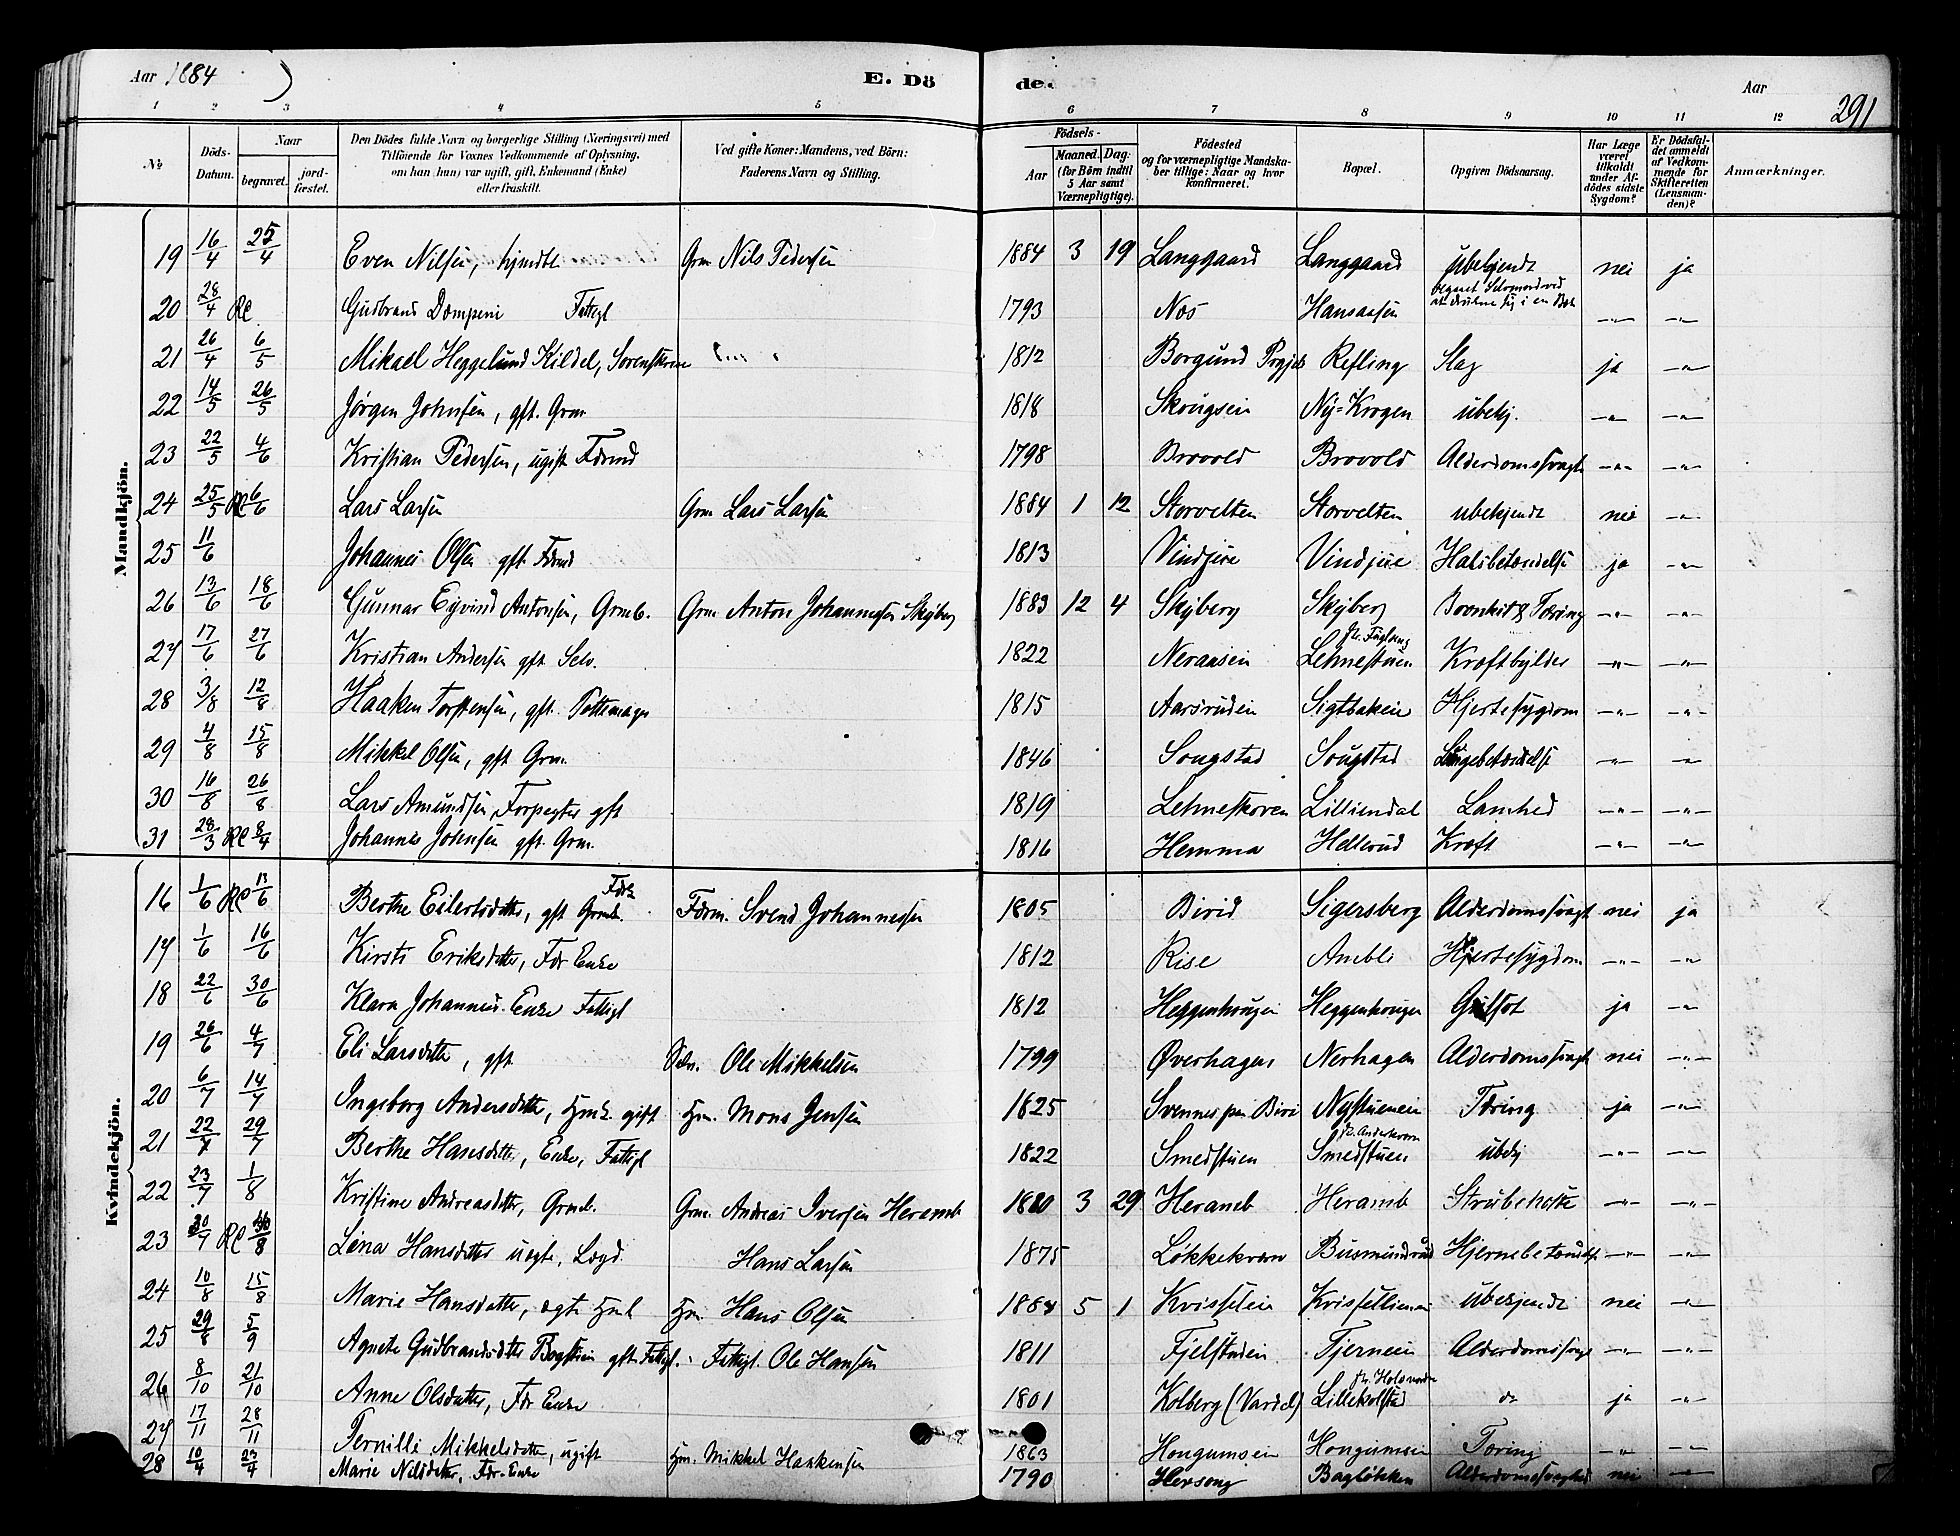 Aar 1884
E. Döde.
Aar
291
1 2 3 4 5 6 7 8 9 10 11 12
№
Döds-Datum.
Naar
begravet.
jordfæstet.
Den Dödes fulde Navn og borgerlige Stilling (Næringsvei) med
Tilföiende for Voxnes Vedkommende af Oplysning,
om han (hun) var ugift, gift, Enkemand (Enke)
eller fraskilt.
Ved gifte Koner: Mandens, ved Börn:
Faderens Navn og Stilling.
Födsels-
Aar
Maaned. Dag.
(for Börn indtil
5 Aar samt
Værnepligtige).
Födested
og for værnepligtige Mandskaber tillige: Naar og hvor
konfirmeret.
Bopæl.
Opgiven Dödsaarsag.
Har Læge
været
tilkaldt
under Afdödes sidste
Sygdom?
Er Dödsfaldet anmeldt
af Vedkommende for
Skifteretten
(Lensmanden)?
Anmærkninger.
Mandkjön.
19 16/4 25/4 Even Nilsen, hjmdt Grm Nils Pedersen 1884 3 19 Langgaard Langgaard ubekjendt nei ja
20 28/4 Gudbrand Fattigl 1793 Nos Hansaasen begaaet Selvmord ved at sig i en Bæk -"- -"-
21 26/4 6/5 Mikael Heggelund Kildel, Sorenskriver 1812 Borgund Refling Slag ja -"-
22 14/5 26/5 Jörgen Johnsen, gft. Grm 1818 Skougsein Ny=Krogen ubekj. -"- -"-
23 22/5 4/6 Kristian Pedersen, ugift Födrmd 1798 Brovold Brovold Alderdomssvagh -"- -"-
24 25/5 6/6 Lars Larsen Grm Lars Larsen 1884 1 12 Storvelten Storvelten ubekjendt nei -"-
25 11/6 Johannes Olsen gft Födrmd 1813 Vindjue Vindjue Halsbetændelse ja -"-
26 13/6 18/6 Gunnar Eyvind Antonsen, Grmb. Grm Anton Johannesen Skyberg 1883 12 4 Skyberg Skyberg Bronkit & Tæring -"- -"-
27 17/6 27/6 Kristian Andersen gft Selv. 1822 Neraasen Lehnestuen Kræftbylder -"- -"-
28 3/8 12/8 Haaken Torstensen, gft. Pottemager 1815 Aarsruden Sigtbakein Hjertesygdom -"- -"-
29 4/8 15/8 Mikkel Olsen, gft Grm. 1846 Sougstad Sougstad Lungebetændelse -"- -"-
30 16/8 26/8 Lars Amundsen Forpagter gft 1819 Lehneskoven Lilliendal Lamhed -"- -"-
31 28/3 8/4 Johannes Johnsen gft Grm. 1816 Hemma Hellerud Kræft -"- -"-
Kvindekjön.
16 1/6 13/6 Berthe Eilertsdatter, gft Födrm. Svend Johannessen 1805 Birid Sigersberg Alderdomssvagt nei ja
17 1/6 16/6 Kirsti Eriksdatter, Fdr Enke 1812 Rise Ambli Hjertesygdom -"- -"-
18 22/6 30/6 Klara Johannes. Enke Fattigl 1812 Heggenhougen Heggenhougen Gulsot ja -"-
19 26/6 4/7 Eli Larsdatter, gft Selv. Ole Mikkelsen 1799 Øverhagen Nerhagen Alderdomssvagt nei -"-
20 6/7 14/7 Ingeborg Andersdatter, Hmk. gift Hm. Mons Jensen 1825 Svennes Biri Nystuenen Tæring ja -"-
21 22/7 29/7 Berthe Hansdatter, Enke, Fattigl 1822 Smedstuen Smedstuen ubekj -"- -"-
22 23/7 1/8 Kristine Andreasdatter, Grmb. Grm. Andreas Iversen Heramb 1880 3 29 Heramb Heramb Strubehoste -"- -"-
23 30/7 Lina Hansdatter uegte, Lægd. Hans Larsen 1875 Løkkekvern Hjernebetændelse -"- -"-
24 10/8 15/8 Marie Hansdatter, ægte Hmb Hm. Hans Olsen 5 1 ubekjendt nei -"-
25 29/8 5/9 Agnete Gudbrandsdatter gft. Fattigl. Fattigl. Ole Hansen 1811 Fjelstuden Tjernein Alderdomssvagt -"- -"-
26 8/10 21/10 Anne Olsdatter, Fdr Enke 1801 Kolberg (Vardal) Lillekolstad do ja -"-
27 17/11 28/11 Pernille Mikkelsdatter, ugift Hm. Mikkel Haakensen 1863 Hougumsein Hougumsein Tæring -"- -"-
28 10/4 23/4 Marie Nilsdatter, Fdr-Enke 1790 Hersoug Bagløkken Alderdomssvaghed nei -"-